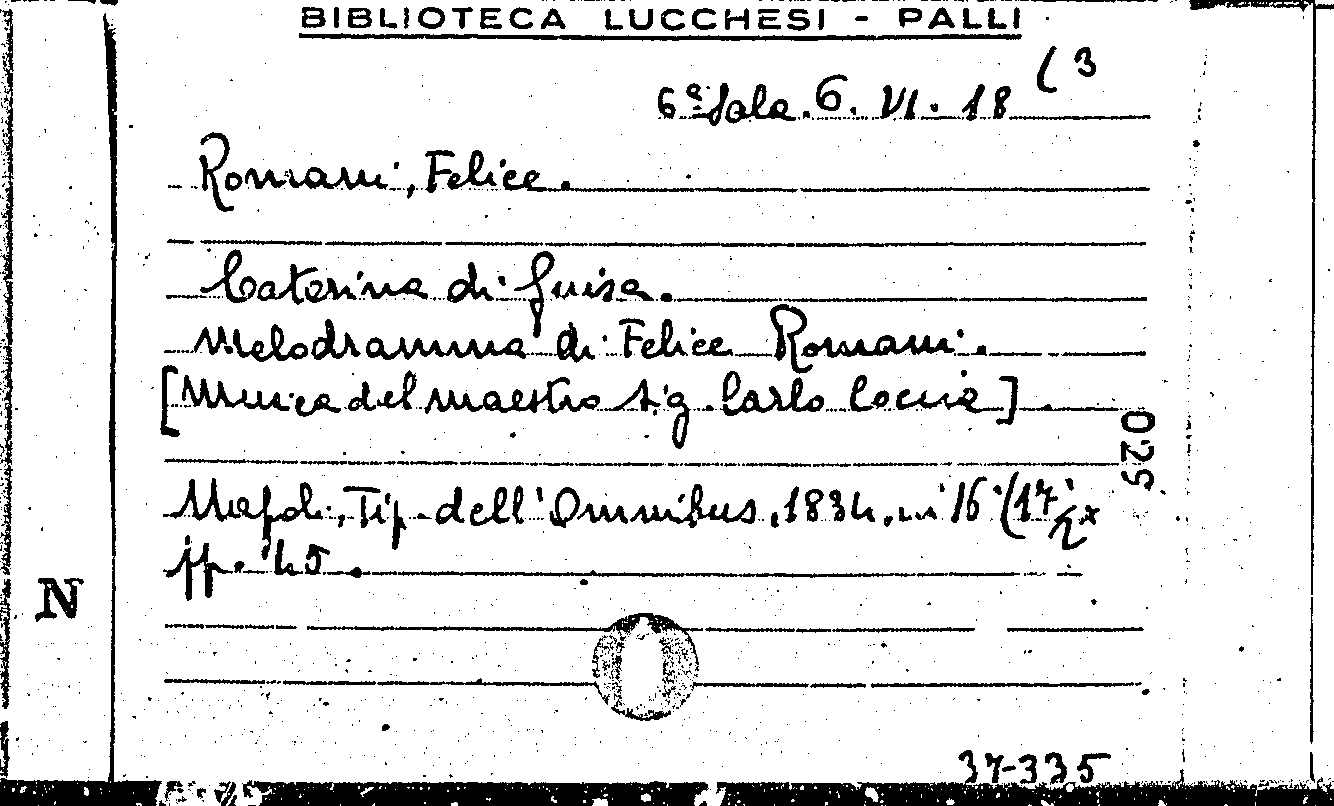 BIBLIOTECA LUCCHESI - PALLI
6ª Sala. 6. VI. 18 (3
Romani, Felice.
Caterina di Guisa.
Melodramma di Felice Romani.
[Musica del maestro sig. Carlo Coccia].
029
Napoli, Tip. dell'Omnibus, 1834, in 16 (17
pp. 45.
N
37-335